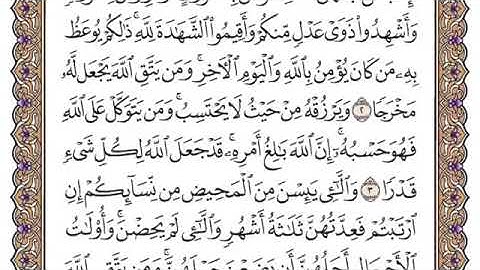 وَأَشْهِدُوا۟ ذَوَىْ عَدْلٍ مِّنكُمْ وَأَقِيمُوا۟ ٱلشَّهَٰدَةَ لِلَّهِ ۚ ذَٰلِكُمْ يُوعَظُ
بِهِۦ مَن كَانَ يُؤْمِنُ بِٱللَّهِ وَٱلْيَوْمِ ٱلْءَاخِرِ ۚ وَمَن يَتَّقِ ٱللَّهَ يَجْعَل لَّهُۥ
مَخْرَجًا ٢ وَيَرْزُقْهُ مِنْ حَيْثُ لَا يَحْتَسِبُ ۚ وَمَن يَتَوَكَّلْ عَلَى ٱللَّهِ
فَهُوَ حَسْبُهُۥٓ ۚ إِنَّ ٱللَّهَ بَٰلِغُ أَمْرِهِۦ ۚ قَدْ جَعَلَ ٱللَّهُ لِكُلِّ شَىْءٍ
قَدْرًا ٣ وَٱلَّٰٓـِٔى يَئِسْنَ مِنَ ٱلْمَحِيضِ مِن نِّسَآئِكُمْ إِنِ
ٱرْتَبْتُمْ فَعِدَّتُهُنَّ ثَلَٰثَةُ أَشْهُرٍ وَٱلَّٰٓـِٔى لَمْ يَحِضْنَ ۚ وَأُو۟لَٰتُ
ٱلْأَحْمَالِ أَجَلُهُنَّ أَن يَضَعْنَ حَمْلَهُنَّ ۚ وَمَن يَتَّقِ ٱللَّهَ